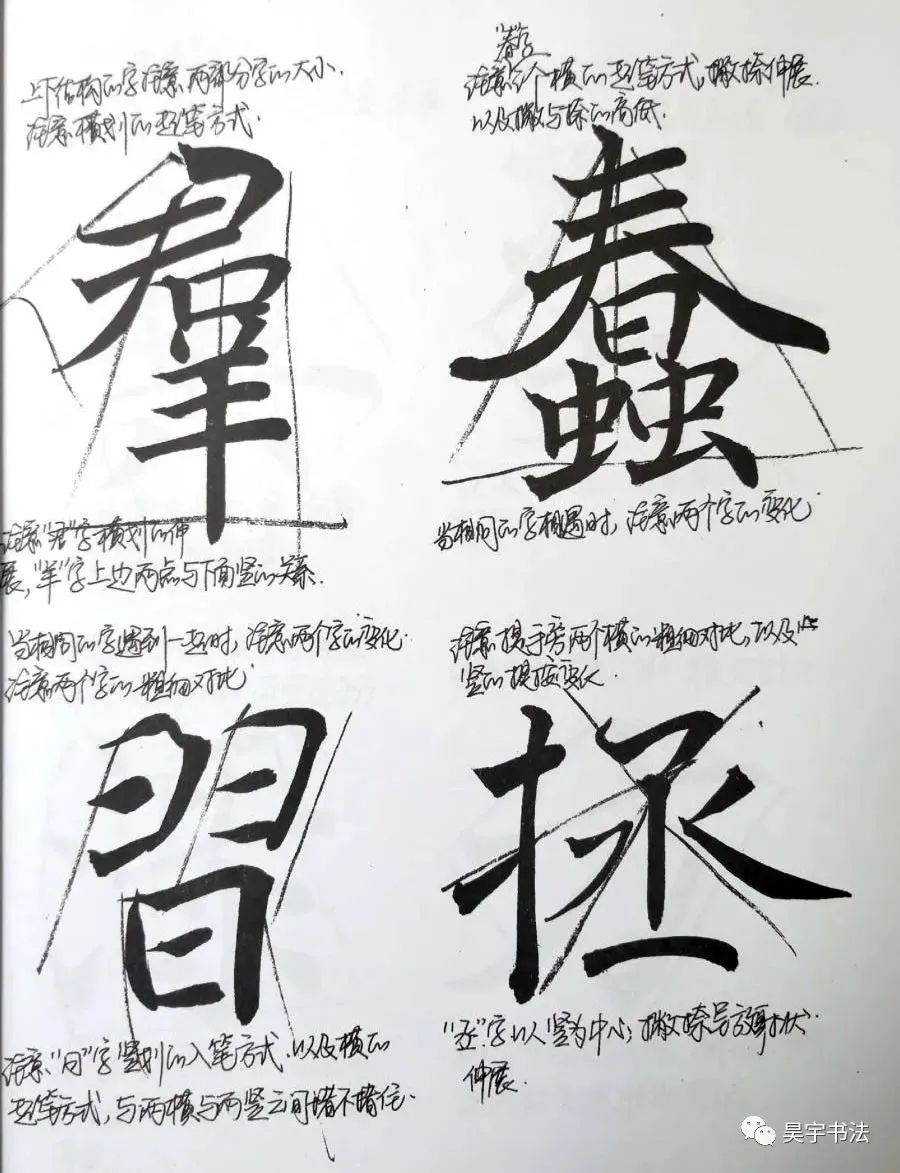 上下结构的字注意两部分字的大小.
注意横划的起笔方式.
羣
注意"君"字横划的伸
展,"羊"字上边两点与下面竖的关系.
"春"
注意各个横的起笔方式,撇捺伸展.
以及撇与捺的高低.
蠢
当相同的字相遇时,注意两个字的变化.
当相同的字遇到一起时,注意两个字的变化.
注意两个字的粗细对比.
習
注意"日"字竖划的入笔方式.以及横的
起笔方式,与两横与两竖之间堵不堵住.
注意提手旁两个横的粗细对比,以及
竖的提按变化.
拯
"丞"字以竖为中心;撇捺呈放射状.
伸展.
昊宇书法